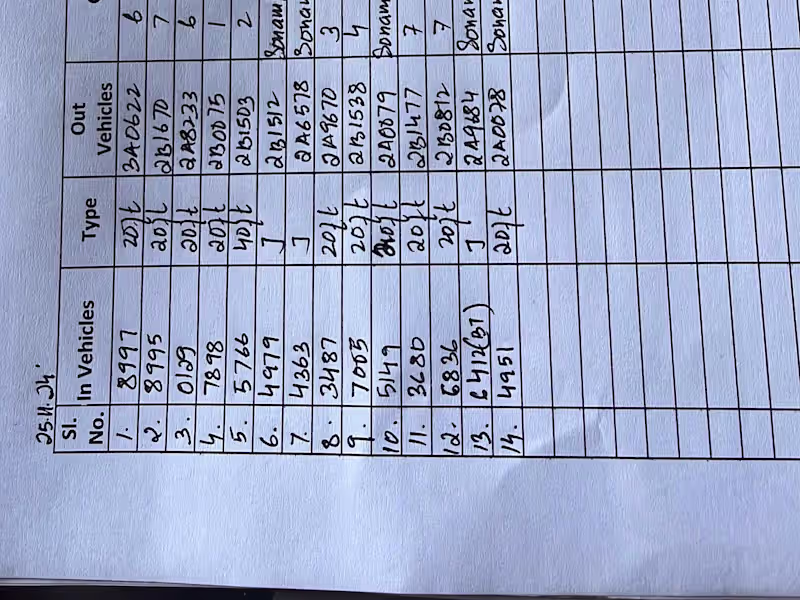 25.11.24'
Sl. No. In Vehicles Type Out Vehicles
1. 8997 20ft 3A0622 6
2. 8995 20ft 2B1670 7
3. 0129 20ft 2A8233 6
4. 7898 20ft 2B0075 1
5. 5766 40ft 2B1503 2
6. 4979 J 2B1512 Sonam
7. 4363 J 2A6578 Sonam
8. 3487 20ft 2A9670 3
9. 7005 20ft 2B1538 4
10. 5149 20ft 2A0079 Sonam
11. 3680 20ft 2B1477 7
12. 6836 20ft 2B0812 7
13. 6412(BT) J 2A9684 Sonam
14. 4951 20ft 2A0078 Sonam